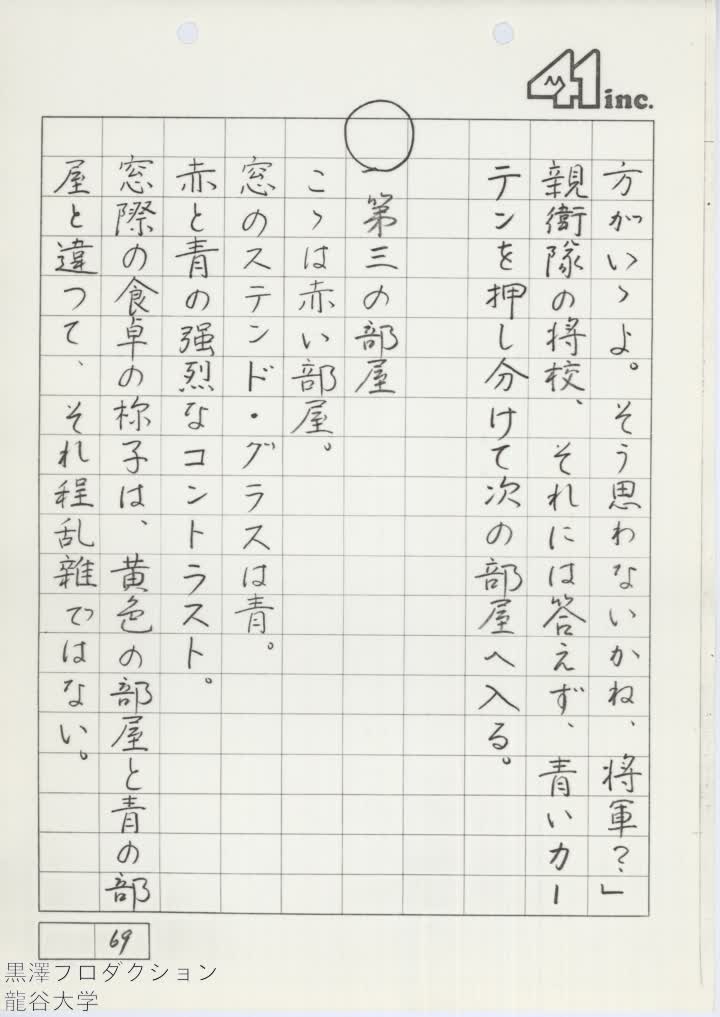 41 inc.
方がいゝよ。そう思わないかね、将軍？」
親衛隊の将校、それには答えず、青いカー
テンを押し分けて次の部屋へ入る。
第三の部屋
こゝは赤い部屋。
窓のステンド・グラスは青。
赤と青の強烈なコントラスト。
窓際の食卓の様子は、黄色の部屋と青の部
屋と違つて、それ程乱雑ではない。
69
黒澤プロダクション
龍谷大学